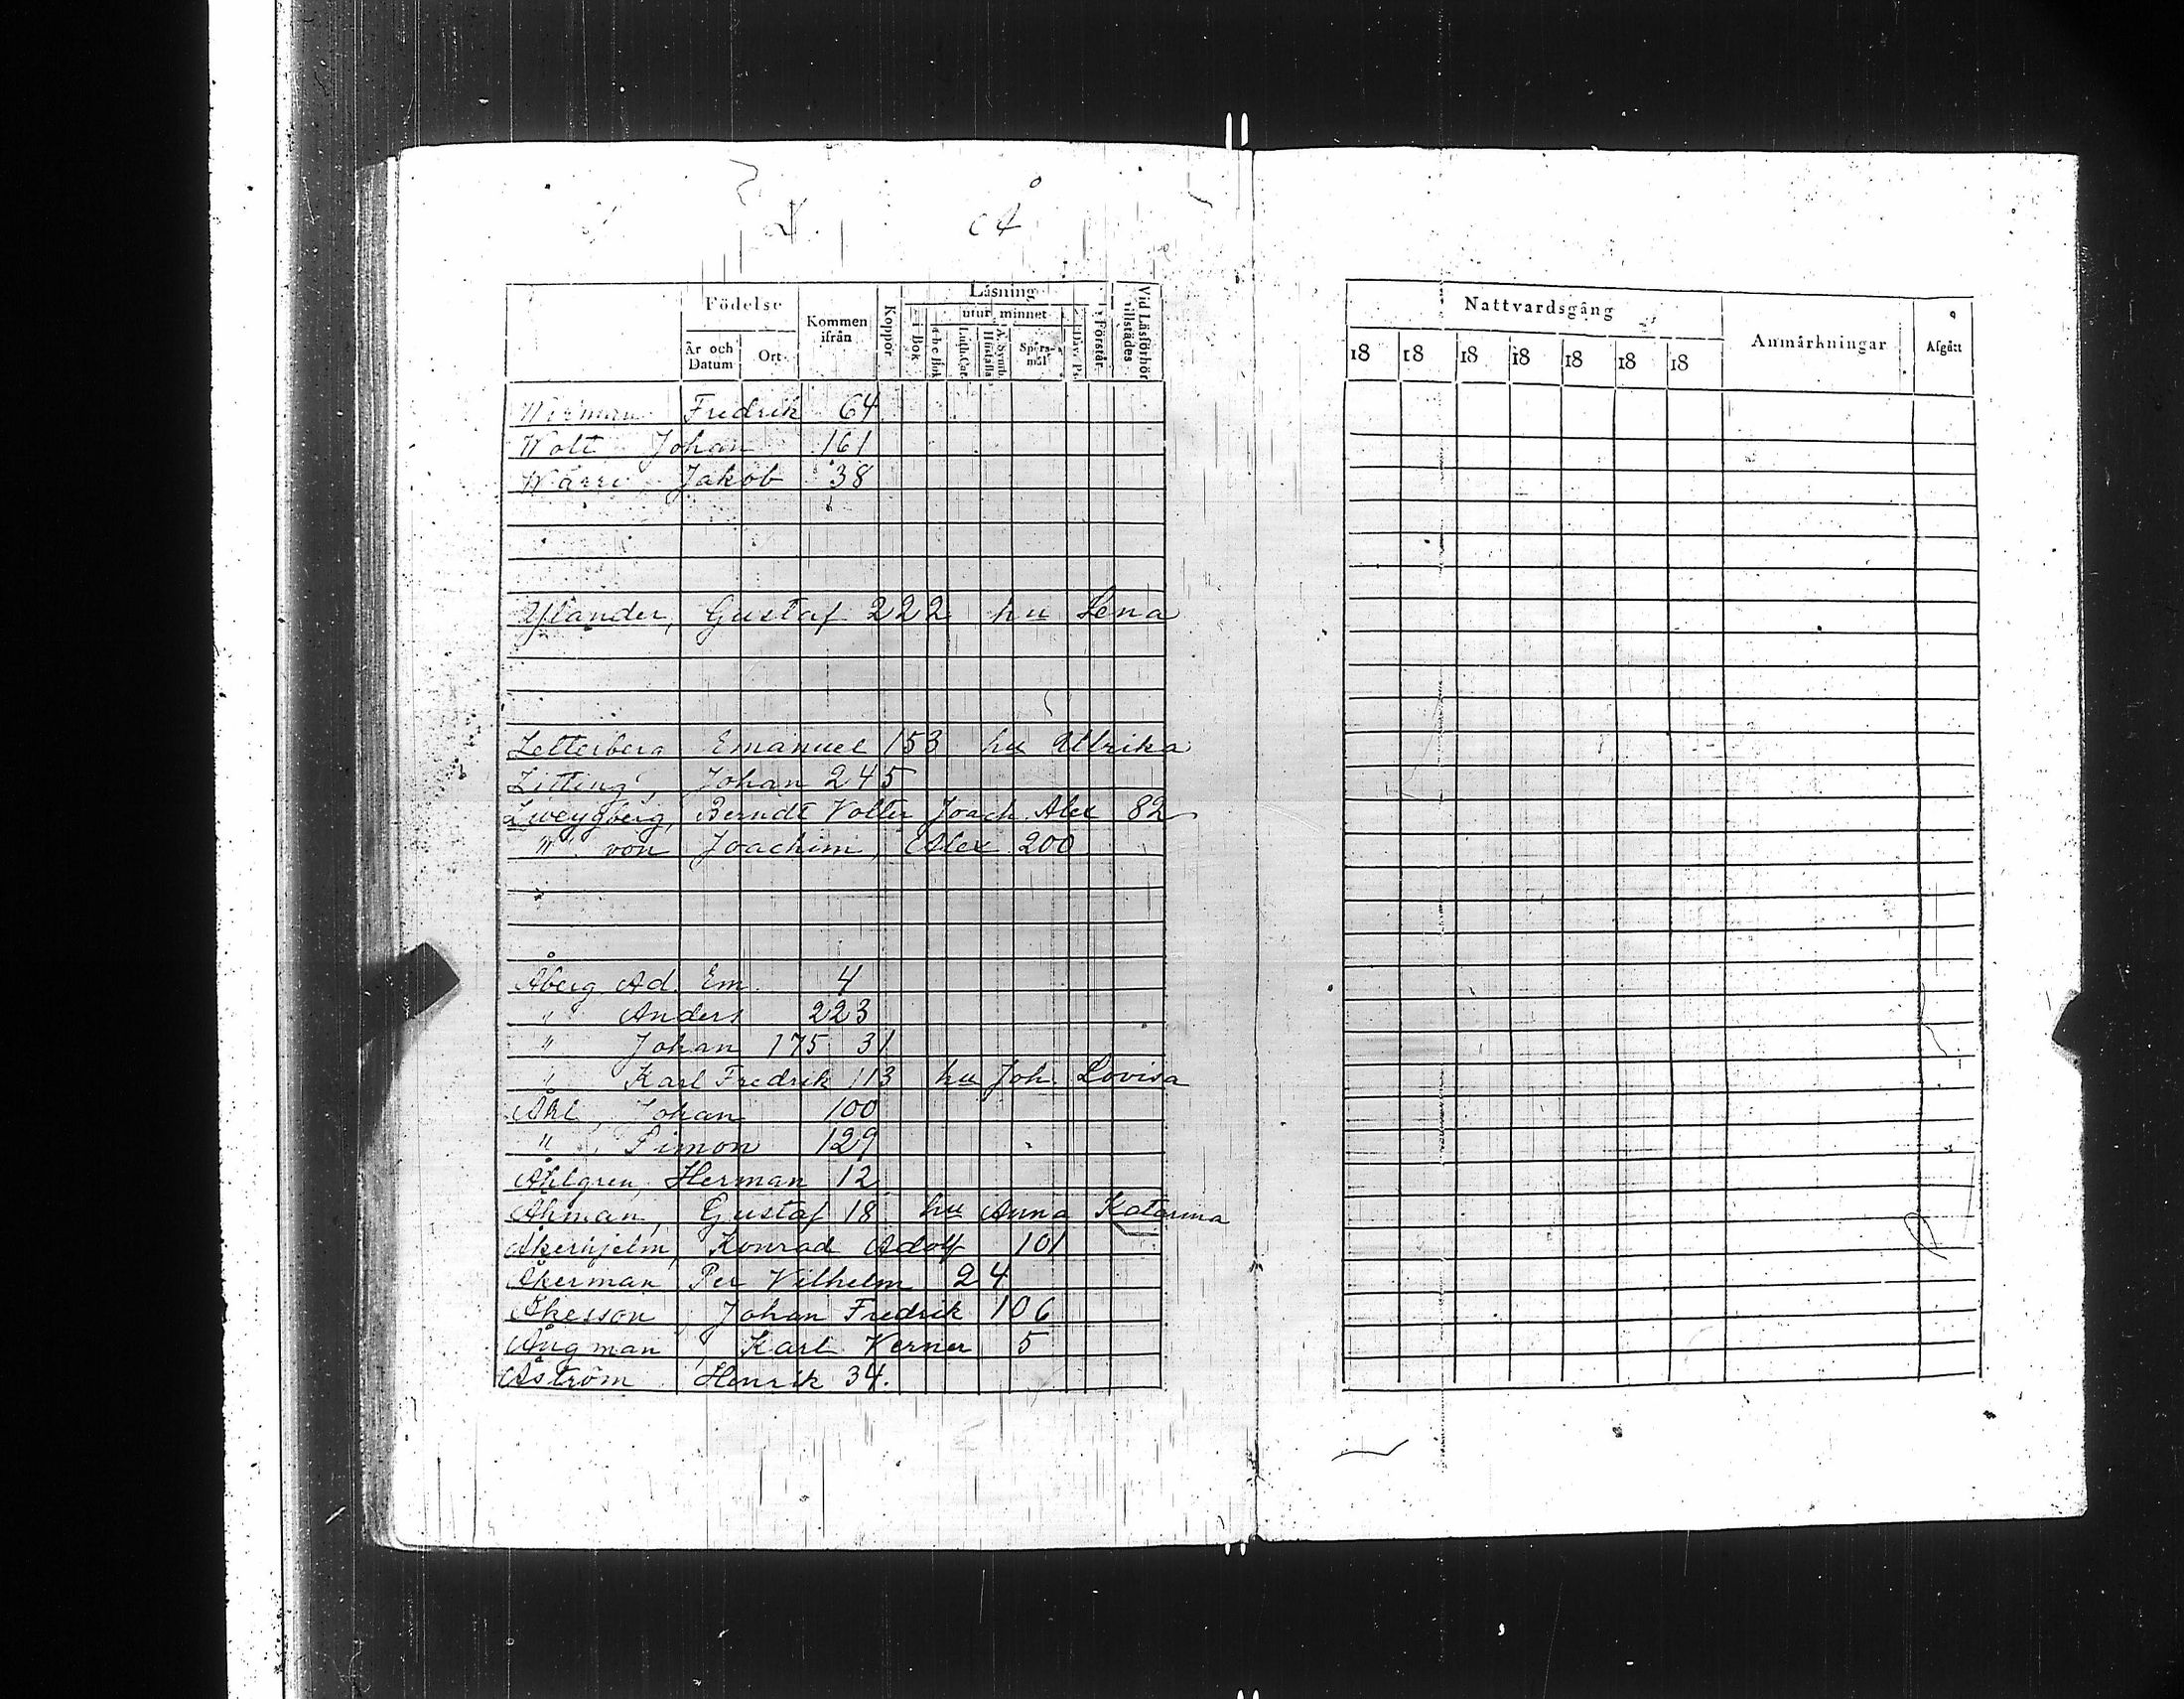 Å
Födelse
Kommen ifrån
Koppor
Läsning
utur minnet
i Bok
a-b-c Bok
Luth. Cat.
Hustafla
A. Symb.
Spörs-mål
Dav. Ps.
Förstår.
Vid Läsförhör tillstädes
År och Datum
Ort
Nattvardsgång
18 18 18 18 18 18 18
Anmärkningar
Afgått
Fredrik 64
Johan 161
Jakob 38
Ylander, Gustaf 222 hu Lena
Zetterberg Emanuel 153 hu Ullrika
Zitting, Johan 245
Zweygberg, Berndt Volter Joach. Alex 82
" von Joachim, Alex 200
Åberg Ad. Em. 4
" Anders 223
" Johan 175 31
" Karl Fredrik 113 hu Joh. Lovisa
Åhl, Johan 100
" Simon 129
Åhlgren, Herman 12
Åhman, Gustaf 18 hu Anna Katarina
Åkerhjelm, Konrad Adolf 101
Åkerman Per Vilhelm 24
Åkesson, Johan Fredrik 106
Ångman, Karl Verner 5
Åström Henrik 34.